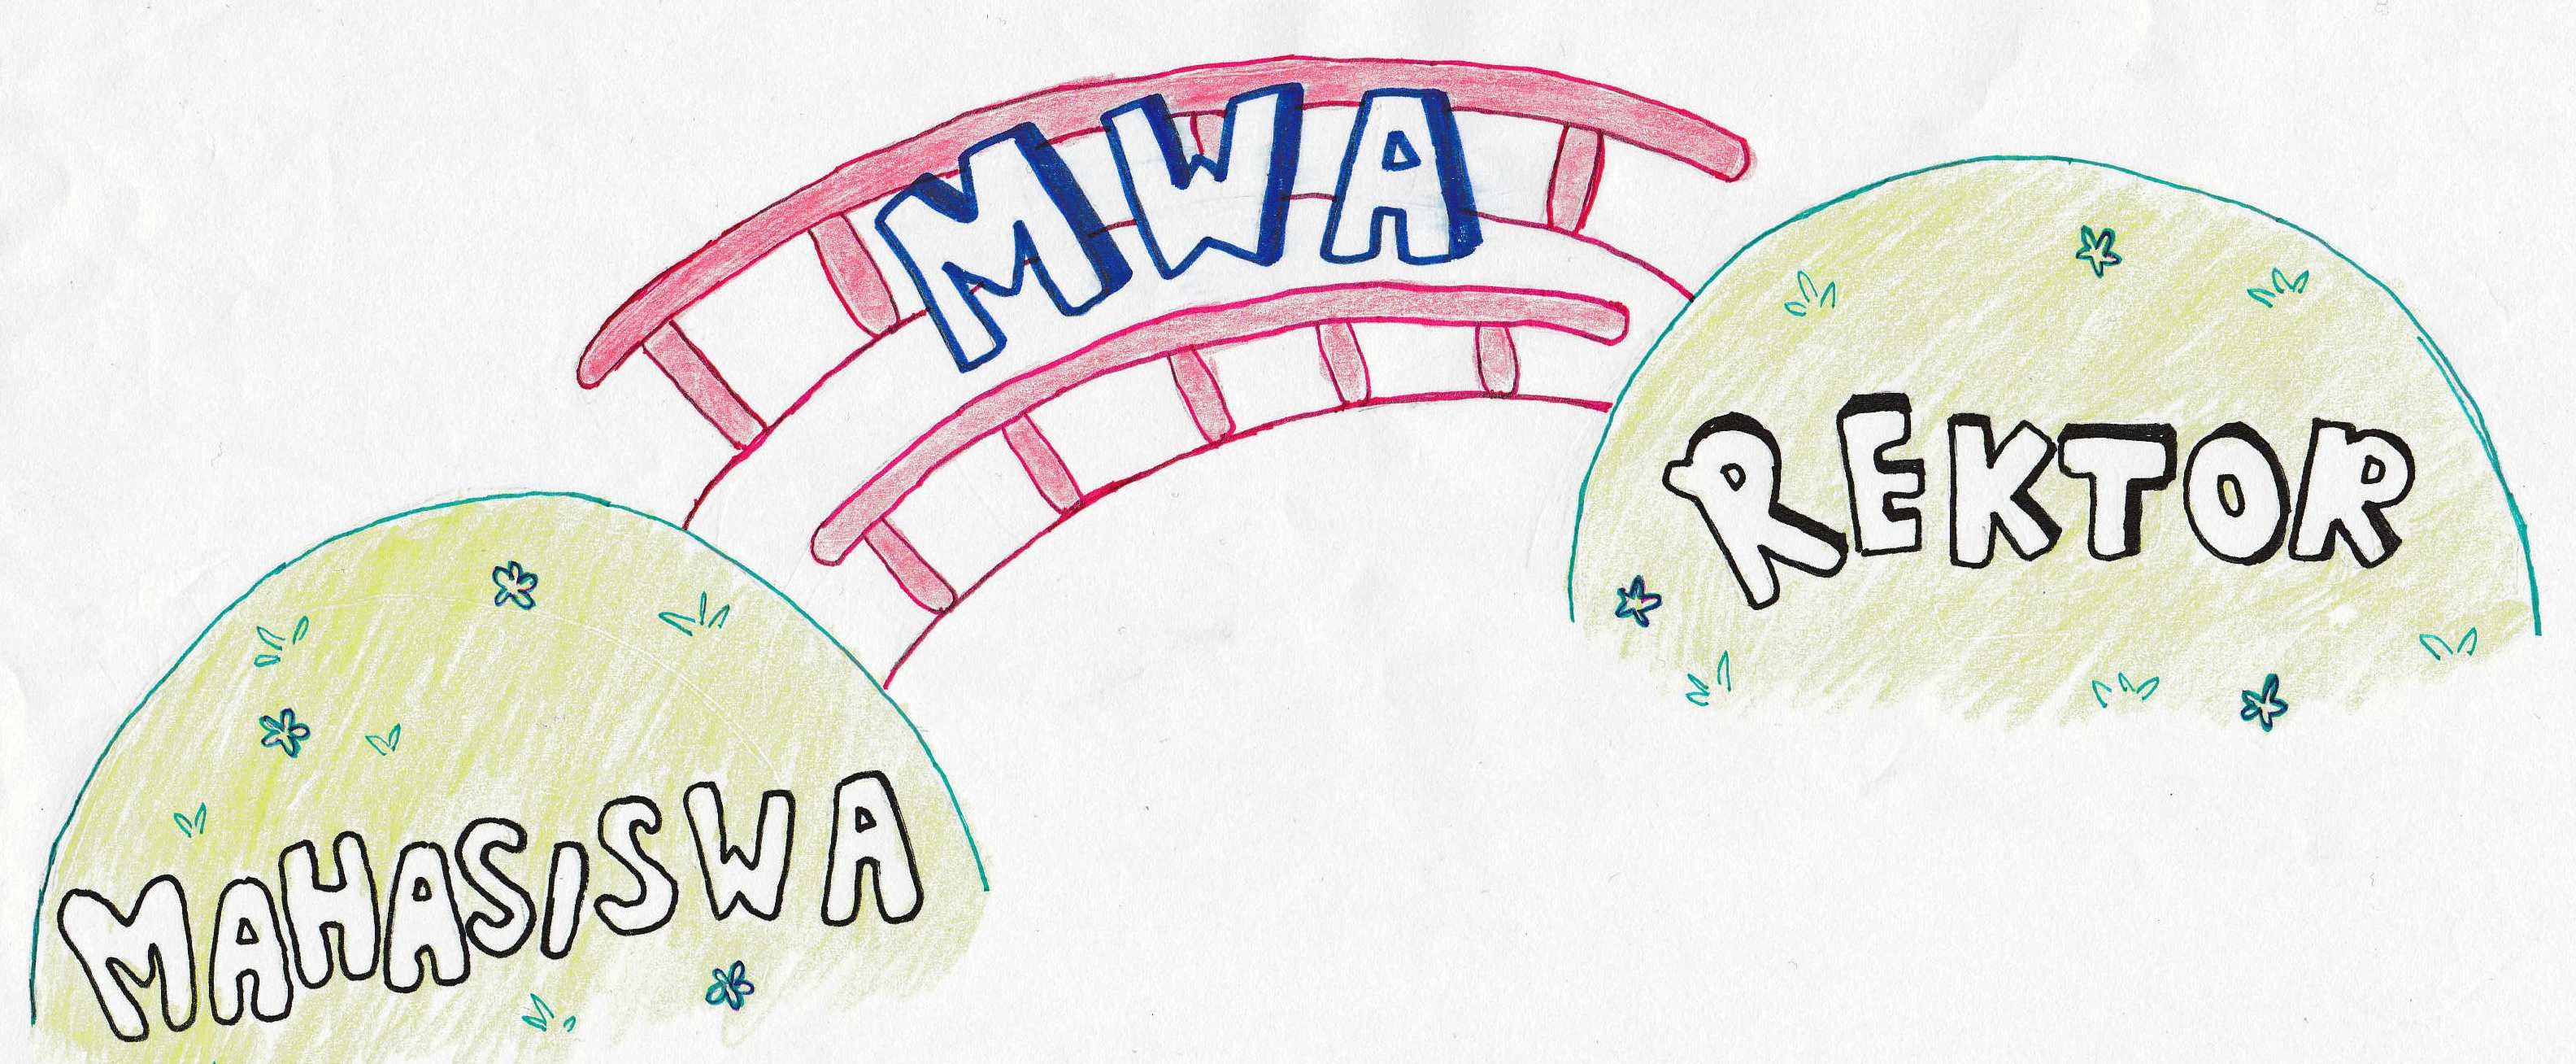 MWA
REKTOR
MAHASISWA